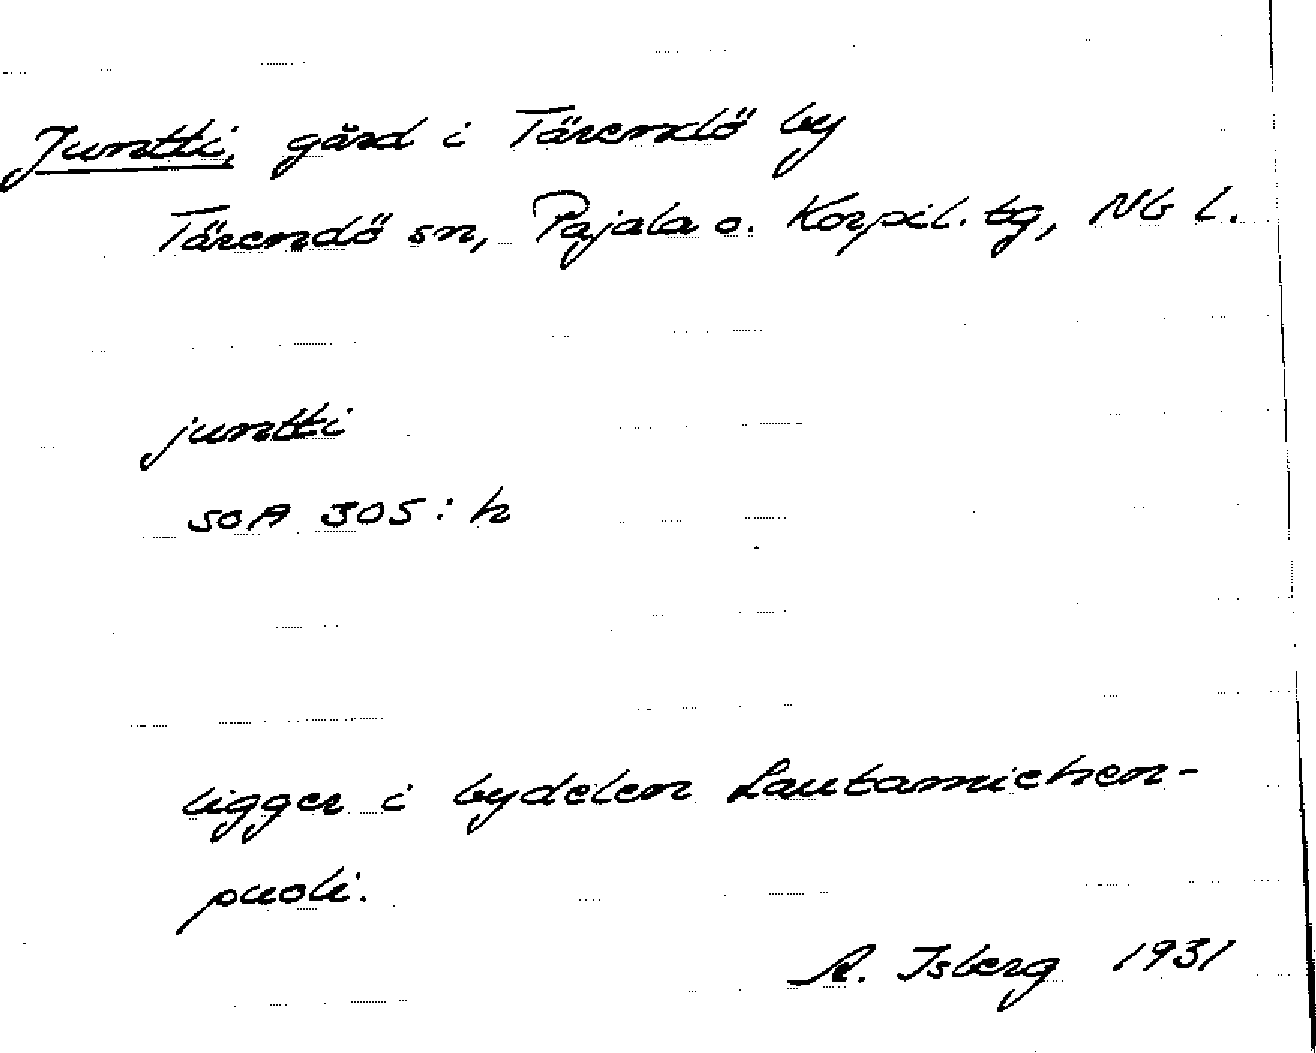 Juntti, gård i Tärendö by
Tärendö sn, Pajala o. Korpil. tg, NB l.
juntti
SOA 305: h
ligger i bydelen Lautamiehen-
puoli.
A. Isberg 1931